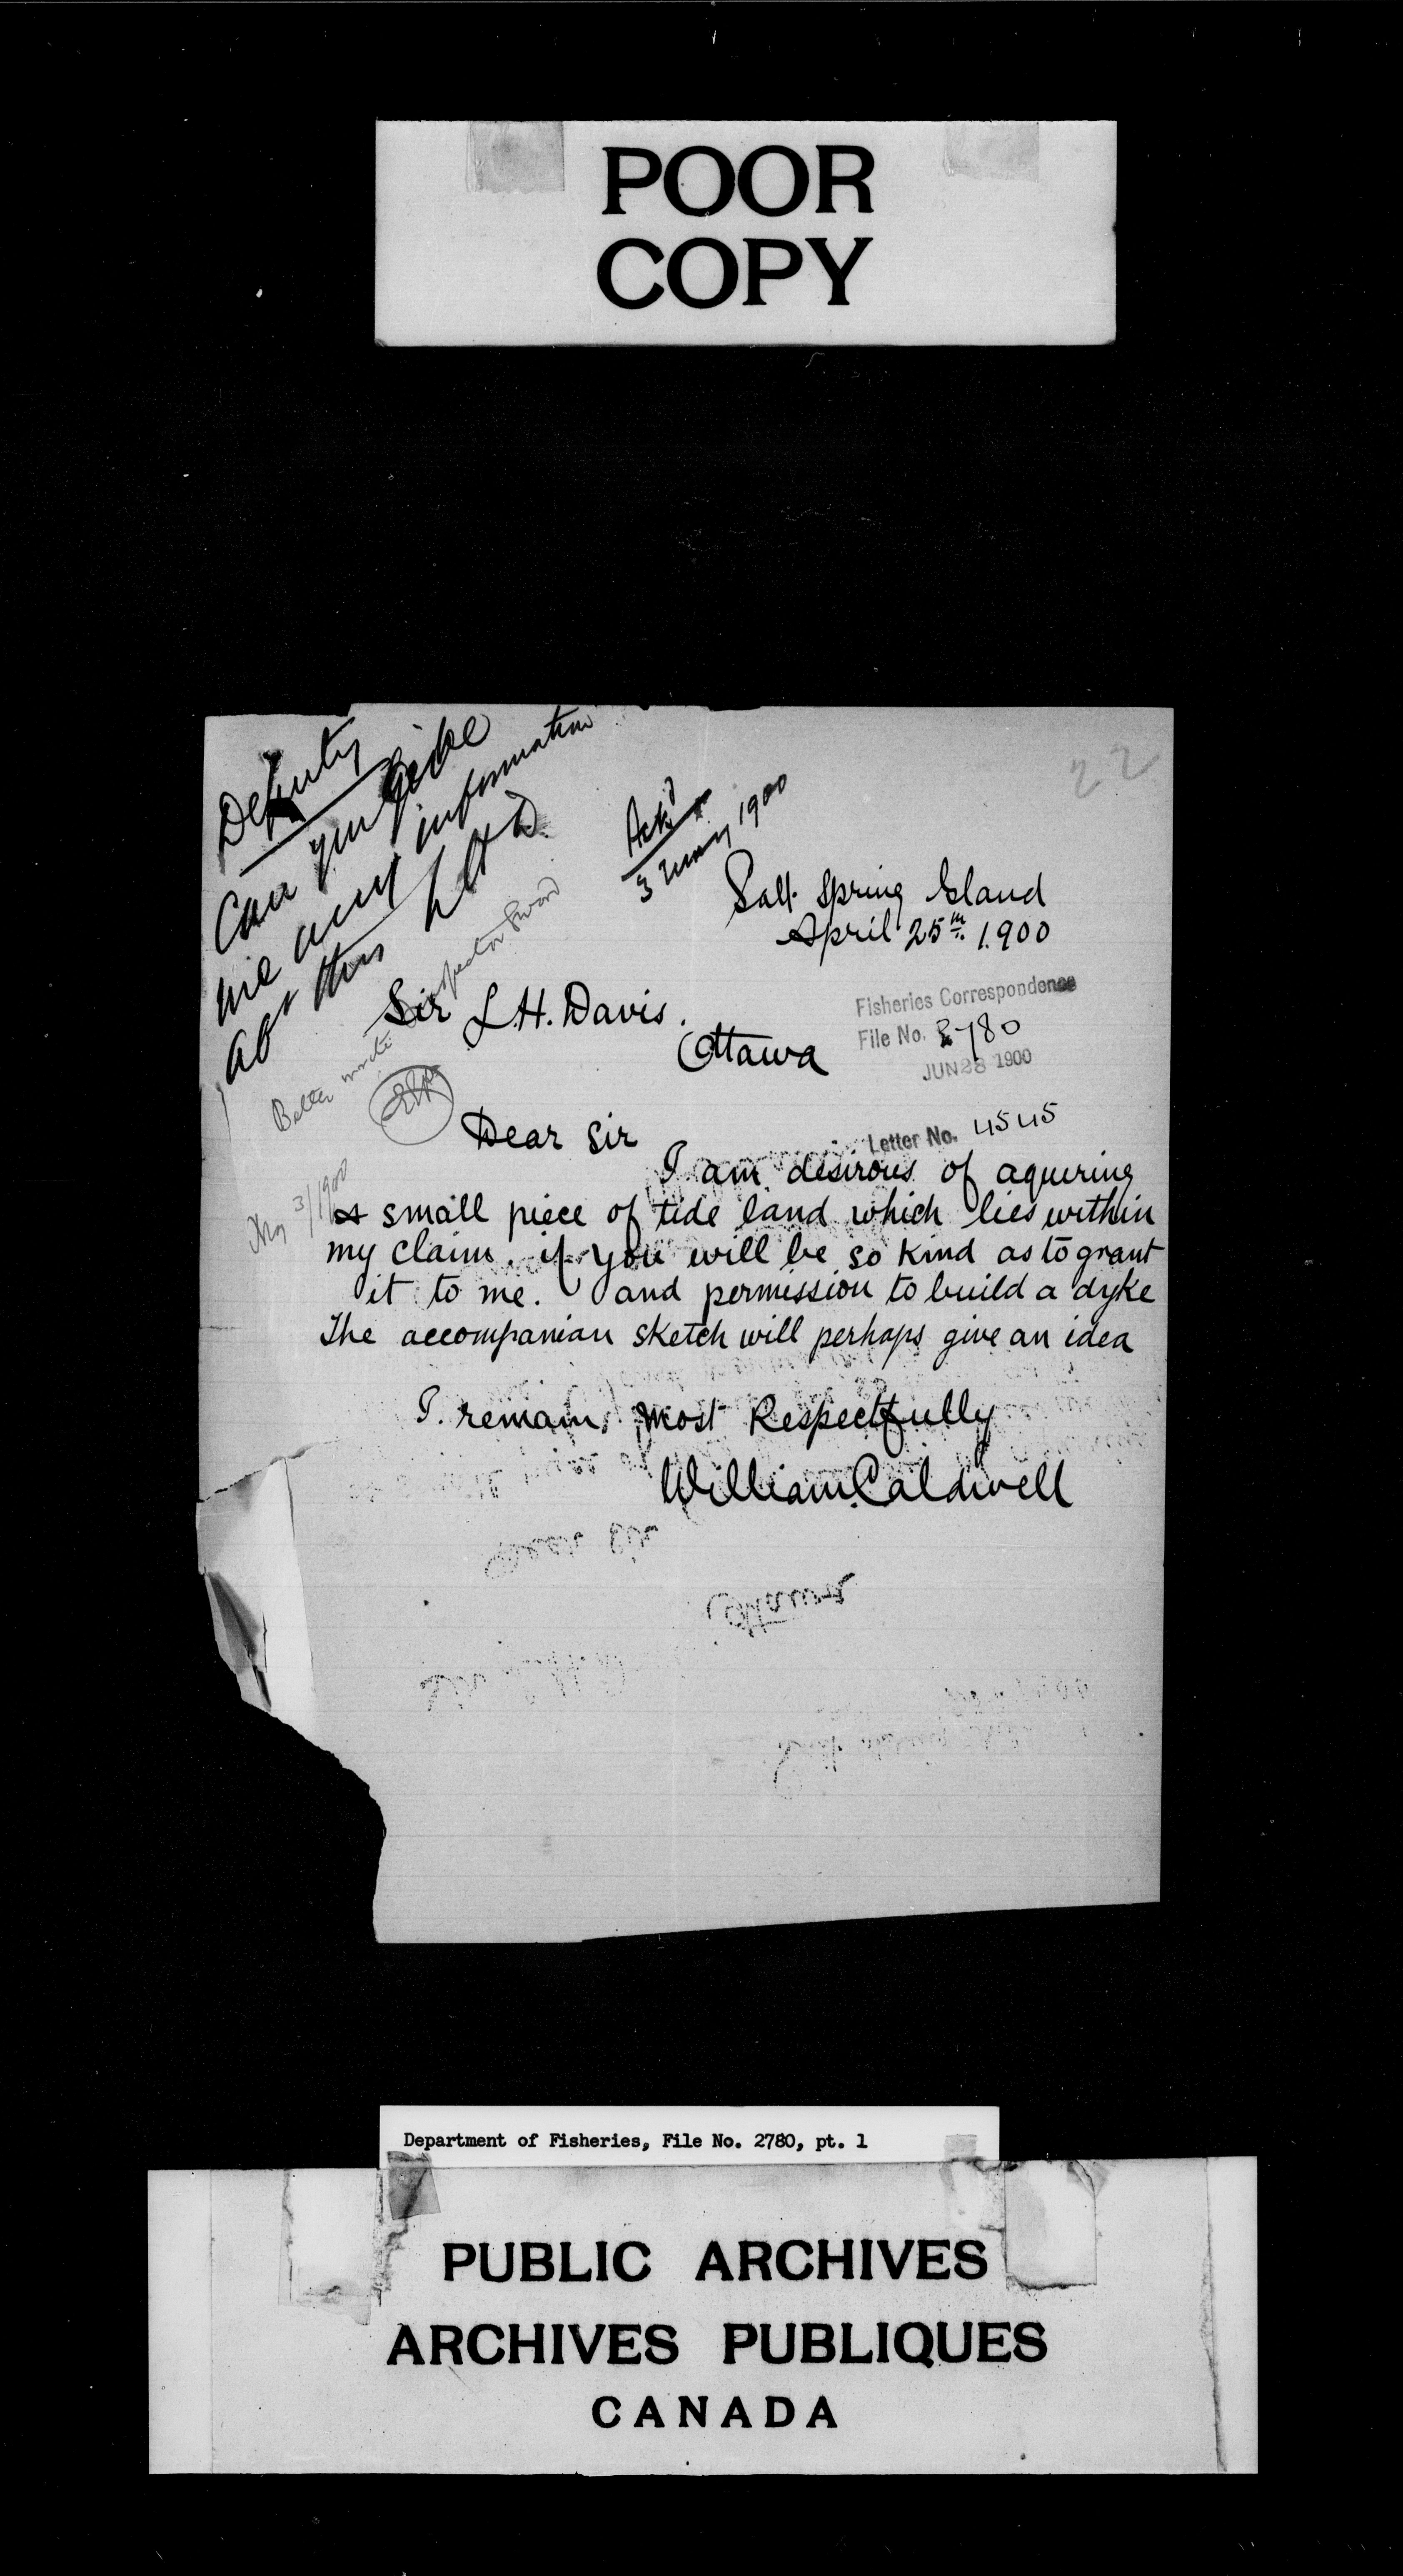 POOR
COPY
22
Deputy
Can you give
me any information
abt this
Ackd
3 May 1900
Salt Spring Island
April 25th 1900
Sir L.H. Davis.
Ottawa
Fisheries Correspondence
File No. 2780
JUN 28 1900
Letter No. 4545
Better write Inspector Sword
May 3/1900
Dear Sir
I am desirous of aquering
a small piece of tide land which lies within
my claim. if you will be so kind as to grant
it to me. and permission to build a dyke
The accompanian sketch will perhaps give an idea
I. remain, Most Respectfully
William Caldwell
Department of Fisheries, File No. 2780, pt. 1
PUBLIC ARCHIVES
ARCHIVES PUBLIQUES
CANADA